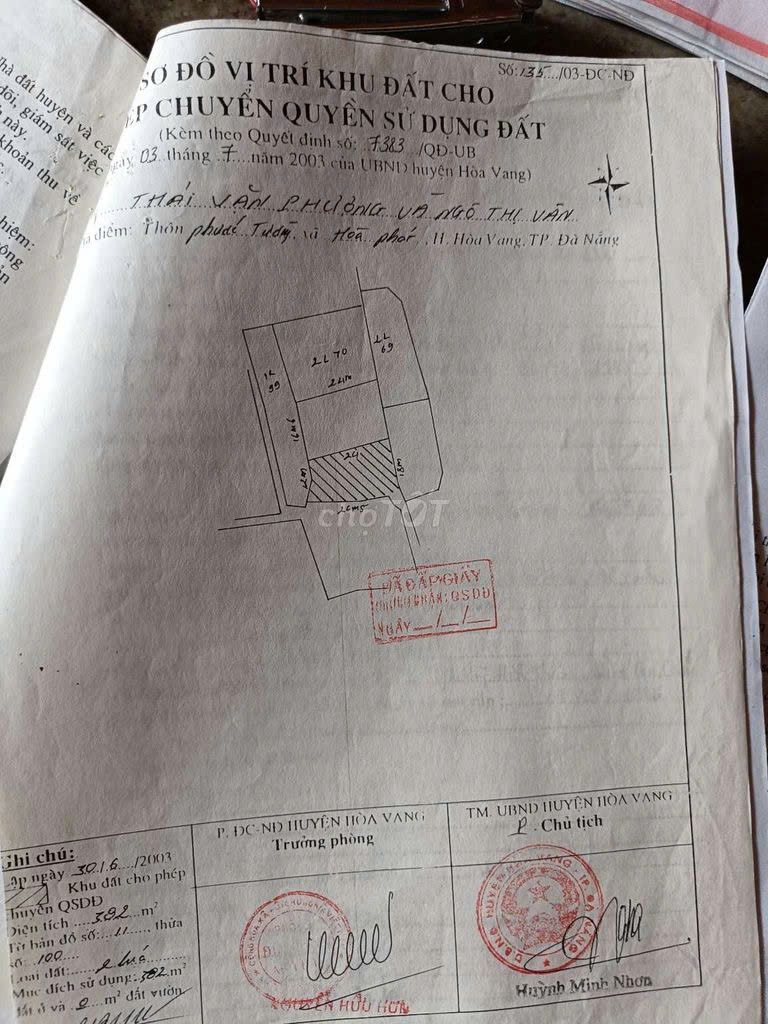 nhà đất huyện và các
dõi, giám sát việc
này.
khoản thu về
hiệm:
ông
ản
Số: 135.../03-ĐC-NĐ
SƠ ĐỒ VỊ TRÍ KHU ĐẤT CHO
ÉP CHUYỂN QUYỀN SỬ DỤNG ĐẤT
(Kèm theo Quyết định số: 7383.../QĐ-UB
ngày 03 tháng 7 năm 2003 của UBND huyện Hòa Vang)
THÁI VĂN PHƯƠNG VÀ NGÔ THỊ VÂN
a điểm: Thôn phước Tường, xã Hoà phát, H. Hòa Vang, TP. Đà Nẵng
2L 70
24m
2L
69
99
16m9
24
12m
18m
26m5
chợTỐT
ĐÃ CẤP GIẤY
CHỨNG NHẬN: QSDĐ
NGÀY __/__/__
Ghi chú:
Lập ngày 30/6.../2003
Khu đất cho phép
chuyển QSDĐ
Diện tích ...382... m²
Tờ bản đồ số: 11..., thửa
số: 100...
Loại đất: 2 lúa
Mục đích sử dụng: 382 m²
đất ở và 0 m² đất vườn
P. ĐC-NĐ HUYỆN HÒA VANG
Trưởng phòng
NGUYỄN HỮU HÙN
TM. UBND HUYỆN HÒA VANG
P. Chủ tịch
U.B.N.D HUYỆN HÒA VANG - T.P ĐÀ NẴNG
Huỳnh Minh Nhơn